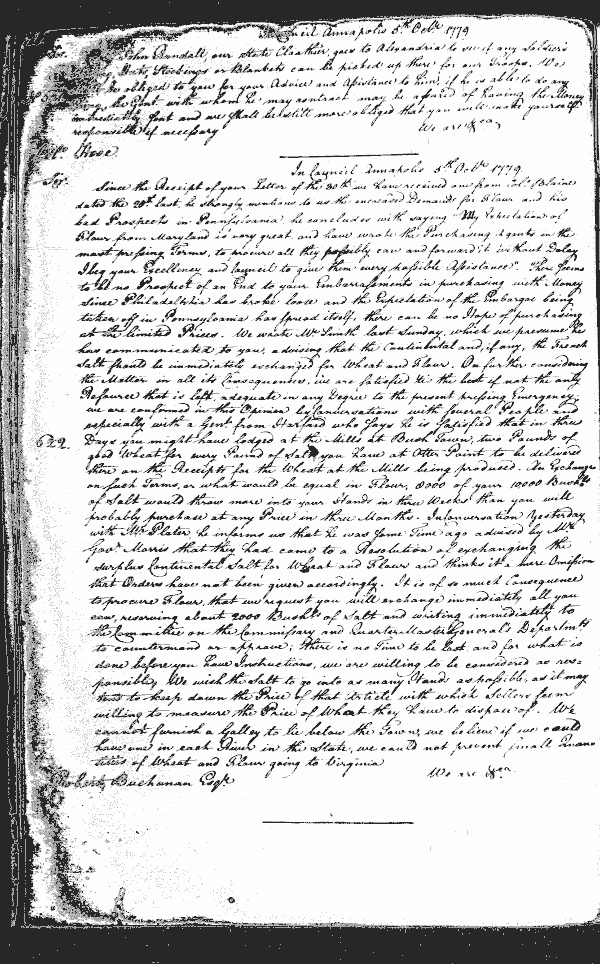 In Council Annapolis 5th Octbr 1779
Sir.
John Randall, our State Cloathier, goes to Alexandria to see if any Soldier's
Hats, Stockings or Blankets can be picked up there for our Troops. We
be obliged to you for your Advice and Assistance to him, if he is able to do any
thing, the Gent with whom he may contract may be assured of having the Money
immediately sent and we shall be still more obliged that you will make yourself
responsible if necessary
We are &ca
Hooe
In Council Annapolis 5th Octbr 1779.
Sir.
Since the Receipt of your Letter of the 30th we have received one from Colo. Blaine
dated the 28th last, he strongly mentions to us the increased Demands for Flour and his
bad Prospects in Pennsylvania, he concludes with saying "My Expectation of
Flour from Maryland is very great and have wrote the Purchasing Agents in the
most pressing Terms, to procure all they possibly can and forward it without Delay
I beg your Excellency and Council to give them every possible Assistance". There seems
to be no Prospect of an End to your Embarrassments in purchasing with Money
since Philadelphia has broke loose and the Expectation of the Embargo being
taken off in Pennsylvania has spread itself, there can be no Hope of purchasing
at the limited Prices. We wrote Mr Smith last Sunday, which we presume he
has communicated to you, advising that the Continental and, if any, the French
Salt should be immediately exchanged for Wheat and Flour. On further considering
the Matter in all its Consequences, we are satisfied tis the best if not the only
Resource that is left adequate in any Degree to the present pressing Emergency,
we are confirmed in this Opinion by Conversations with several People and
especially with a Gent from Harford who says he is satisfied that in three
622.
Days you might have lodged at the Mills at Bush Town, two Pounds of
good Wheat for every Pound of Salt you have at Otter Point to be delivered
there on the Receipts for the Wheat at the Mills being produced. An Exchange
on such Terms, or what would be equal in Flour, 8000 of your 10000 Bushls
of Salt would throw more into your Hands in three Weeks than you will
probably purchase at any Price in three Months. In Conversation Yesterday
with Mr Plater, he informs us that he was some Time ago advised by Mr
Govr Morris that they had come to a Resolution of exchanging the
surplus Continental Salt for Wheat and Flour and thinks it a mere Omission
that Orders have not been given accordingly. It is of so much Consequence
to procure Flour, that we request you will exchange immediately all you
can, reserving about 2000 Bushls of Salt and writing immediately to
the Committee on the Commissary and Quarter Master General's Departmts
to countermand or approve; there is no Time to be lost and for what is
done before you have Instructions, we are willing to be considered as res-
ponsible. We wish the Salt to go into as many Hands as possible, as it may
tend to keep down the Price of that Article with which Sellers seem
willing to measure the Price of What they have to dispose of. We
cannot furnish a Galley to lie below the Town, we believe if we could
have one in each River in the State, we could not prevent small Quan-
tities of Wheat and Flour going to Virginia
We are &ca.
Robert Buchanan Esqr.